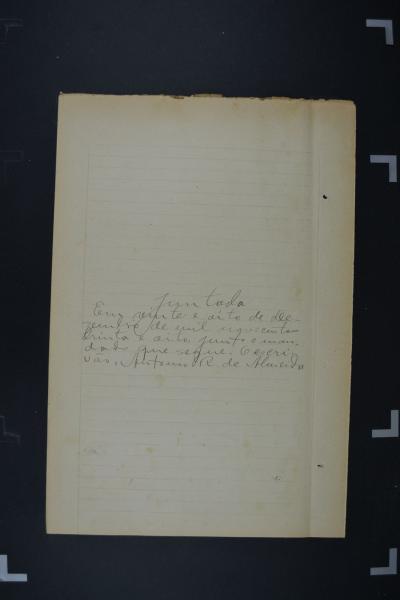 Juntada
Em vinte e oito de De-
zembro de mil novecentos
trinta e oito junto o man-
dado que segue. O escri-
vão, Antonio R. de Almeida